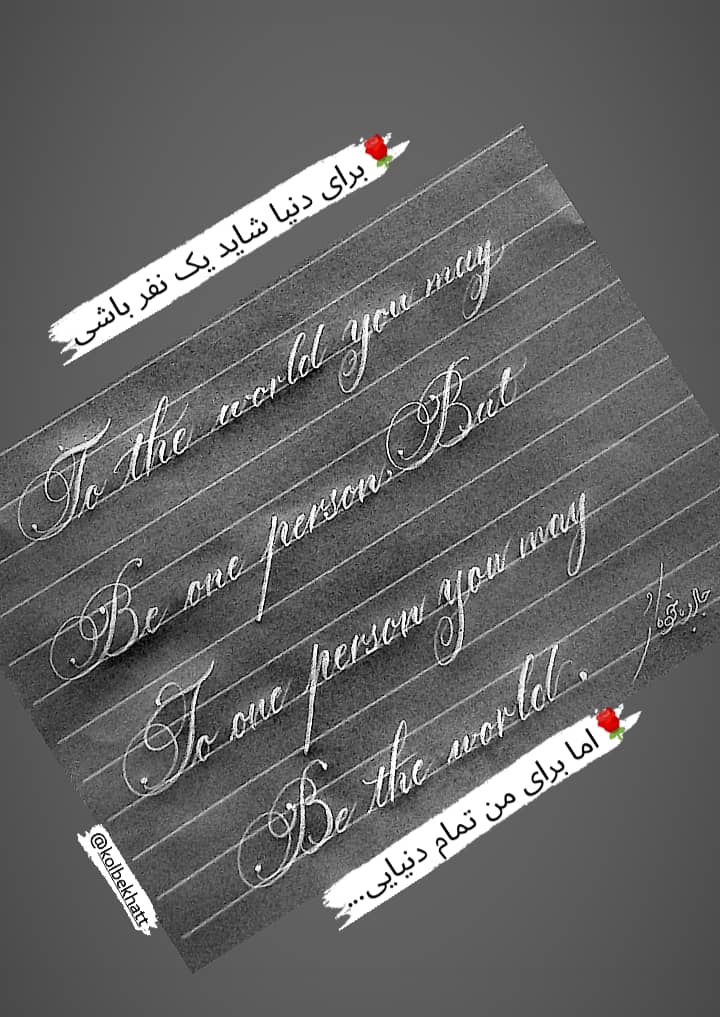 برای دنیا شاید یک نفر باشی
To the world you may
Be one person, But
To one person you may
Be the world.
اما برای من تمام دنیایی...
@kolbekhatt